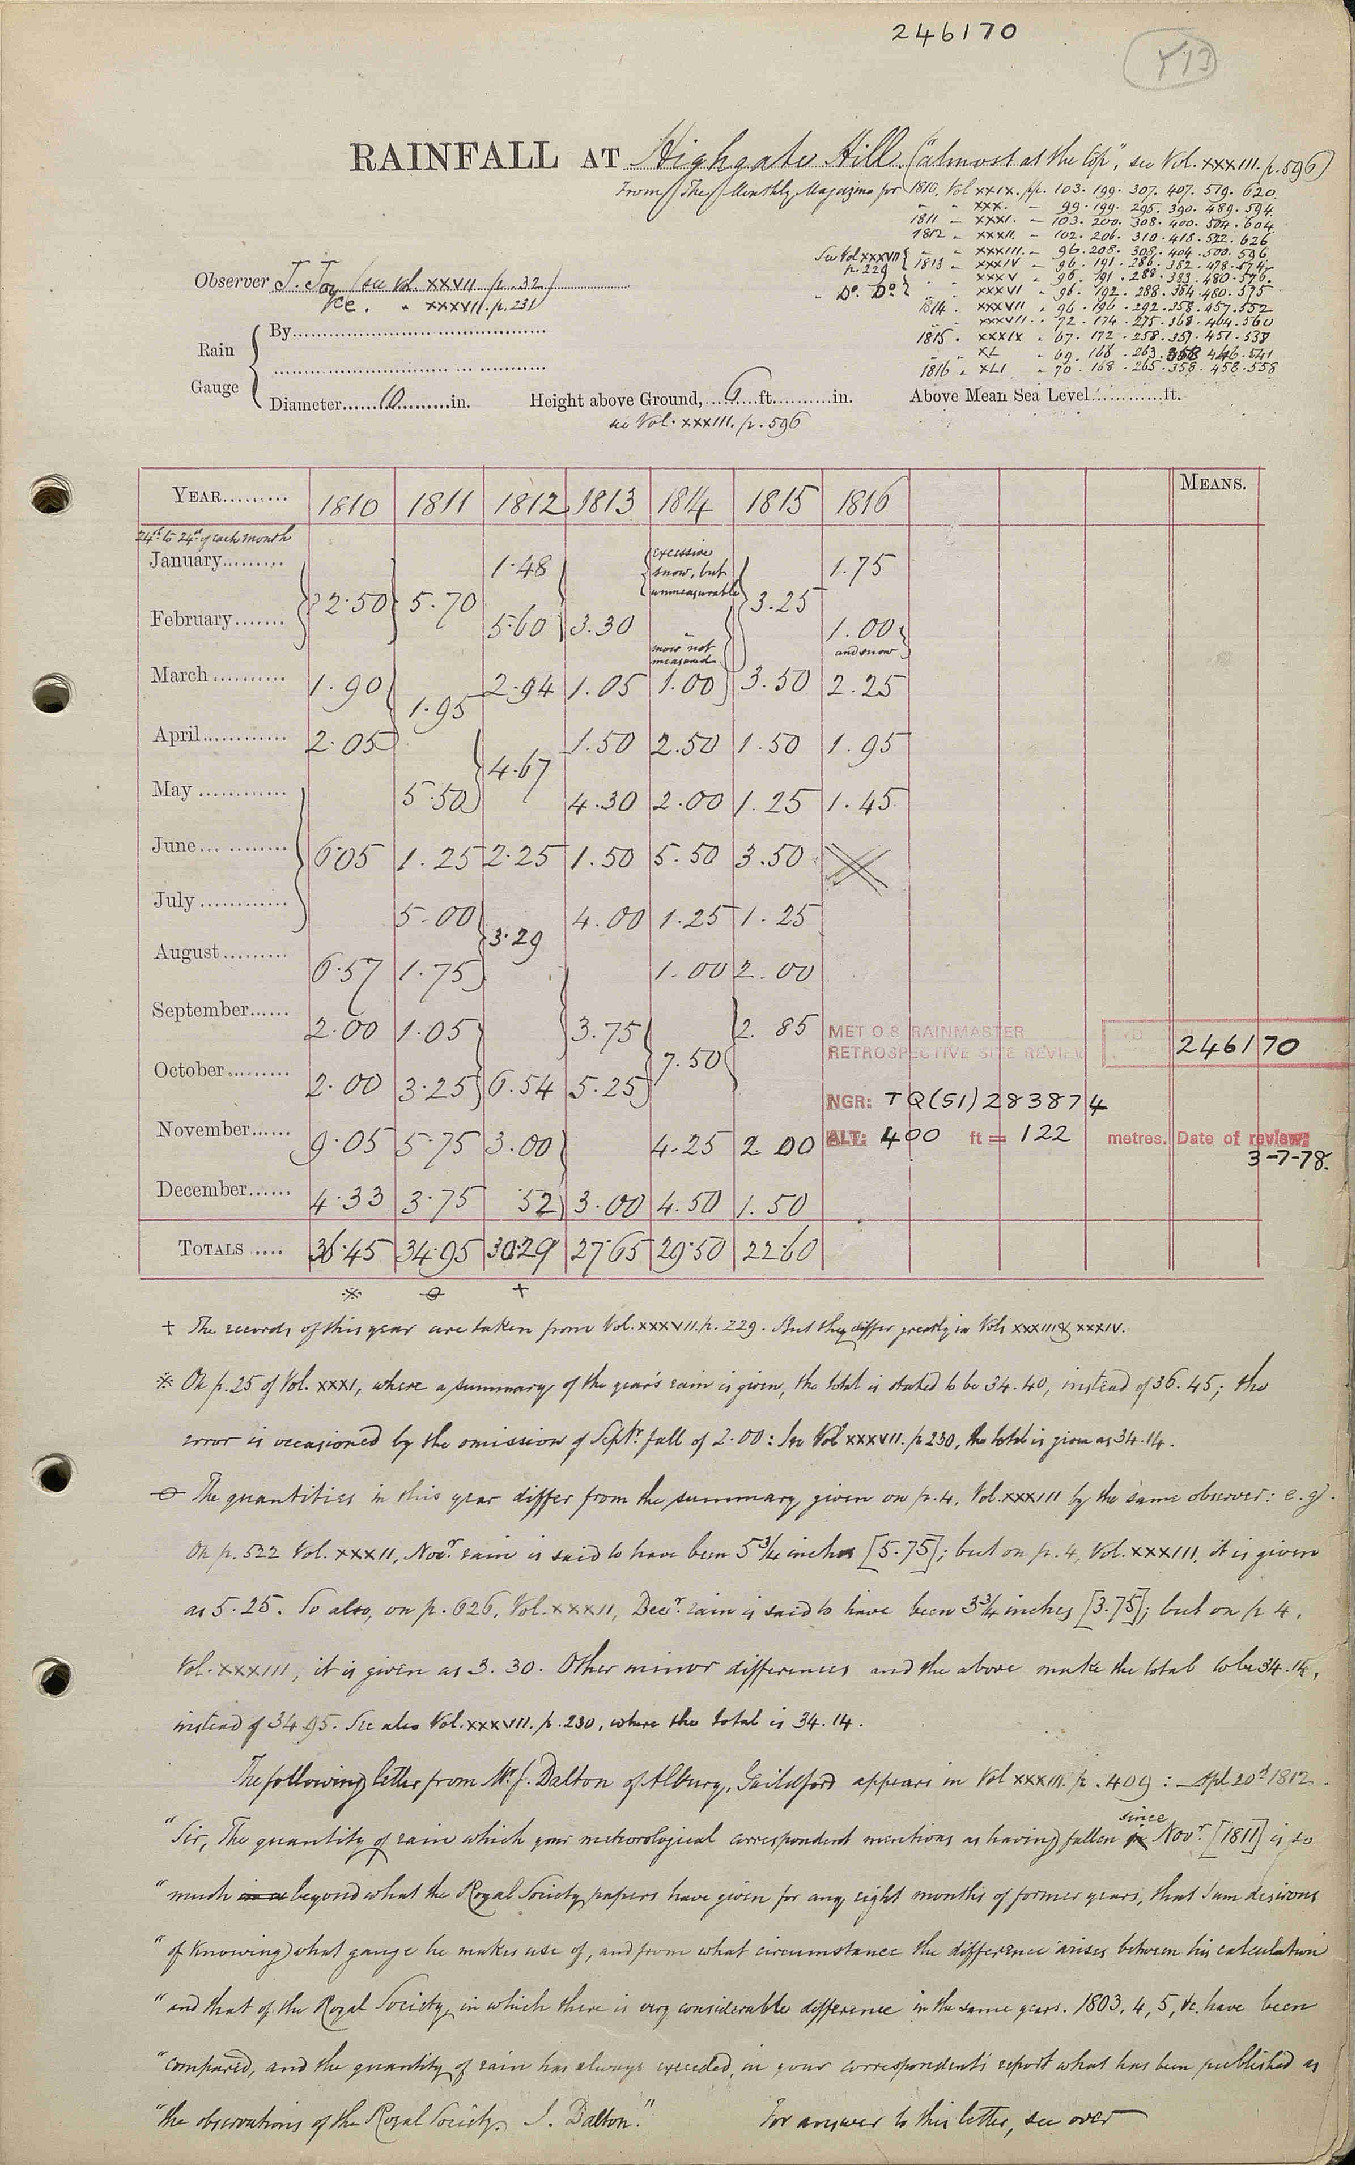 246170
Y13
RAINFALL AT Highgate Hill. ("almost at the top", see Vol. XXXIII. p. 596)
From "The Monthly Magazine" for 1810. Vol XXIX. pp. 103. 199. 307. 407. 519. 620
- - XXX. - 99. 199. 295. 390. 489. 594
1811 - XXXI. - 103. 200. 308. 400. 504. 604
1812 - XXXII. - 102. 206. 310. 418. 522. 626
- - XXXIII. - 96. 208. 308. 404. 500. 596
See Vol XXXVII p. 229 { 1813 - XXXIV - 96. 191. 286. 382. 478. 574
- - XXXV - 96. 191. 288. 383. 480. 576.
- Do. Do. { - XXXVI - 96. 192. 288. 384. 480. 575
1814. XXXVII. - 96. 196. 292. 358. 457. 552
- XXXVIII. - 72. 174. 275. 368. 464. 560
1815. XXXIX - 67. 172. 258. 357. 451. 538
- - XL - 69. 168. 263. 358 446. 541
1816. XLI - 70. 168. 265. 358. 458. 558
Observer J. Joyce. (see Vol XXVII p. 32)
" XXXVII. p. 231
Rain Gauge
By
Diameter 10 in.
Height above Ground, 6 ft. in.
Above Mean Sea Level ft.
see Vol. XXXIII. p. 596
YEAR 1810 1811 1812 1813 1814 1815 1816 MEANS.
24th to 24th of each month
January 1.48 {excessive snow, but unmeasurable 1.75
February ?2.50 5.70 5.60 3.30 3.25 1.00 and snow
snow not measured
March 1.90 2.94 1.05 1.00 3.50 2.25
1.95
April 2.05 1.50 2.50 1.50 1.95
4.67
May 5.50 4.30 2.00 1.25 1.45
June 6.05 1.25 2.25 1.50 5.50 3.50
July 5.00 4.00 1.25 1.25
3.29
August 6.57 1.75 1.00 2.00
September 2.00 1.05 3.75 2.85
7.50
October 2.00 3.25 6.54 5.25
November 9.05 5.75 3.00 4.25 2.00
December 4.33 3.75 .52 3.00 4.50 1.50
TOTALS 36.45 34.95 30.29 27.65 29.50 22.60
MET O.8 RAINMASTER
RETROSPECTIVE SITE REVIEW
246170
NGR: TQ(51)283874
ALT: 400 ft = 122 metres. Date of review:
3-7-78.
+ The records of this year are taken from Vol. XXXVII. p. 229. But they differ greatly in Vols XXXIII & XXXIV.
※ On p. 25 of Vol. XXXI, where a summary of the year's rain is given, the total is stated to be 34.40, instead of 36.45; the
error is occasioned by the omission of Septr. fall of 2.00: In Vol XXXVII. p 230, the total is given as 34.14.
⊖ The quantities in this year differ from the summary given on p. 4, Vol. XXXIII by the same observer: e.g.
On p. 522 Vol. XXXII, Novr. rain is said to have been 5 3/4 inches [5.75]; but on p. 4, Vol. XXXIII, it is given
as 5.25. So also, on p. 626, Vol. XXXII, Decr. rain is said to have been 3 3/4 inches [3.75]; but on p 4,
Vol. XXXIII, it is given as 3.30. Other minor differences and the above make the total to be 34.14,
instead of 34.95. See also Vol. XXXVII. p. 230, where the total is 34.14.
The following letter from Mr. J. Dalton of Albury, Guildford appears in Vol XXXIII. p. 409: — Apl 20th 1812.
"Sir, The quantity of rain which your meteorological correspondent mentions as having fallen since Novr. [1811] is so
"much beyond what the Royal Society papers have given for any eight months of former years, that I am desirous
"of knowing what gauge he makes use of, and from what circumstance the difference arises between his calculation
"and that of the Royal Society, in which there is very considerable difference in the same years. 1803, 4, 5, &c. have been
"compared, and the quantity of rain has always exceeded, in your correspondent's report what has been published as
"the observations of the Royal Society. J. Dalton."
For answer to this letter, see over